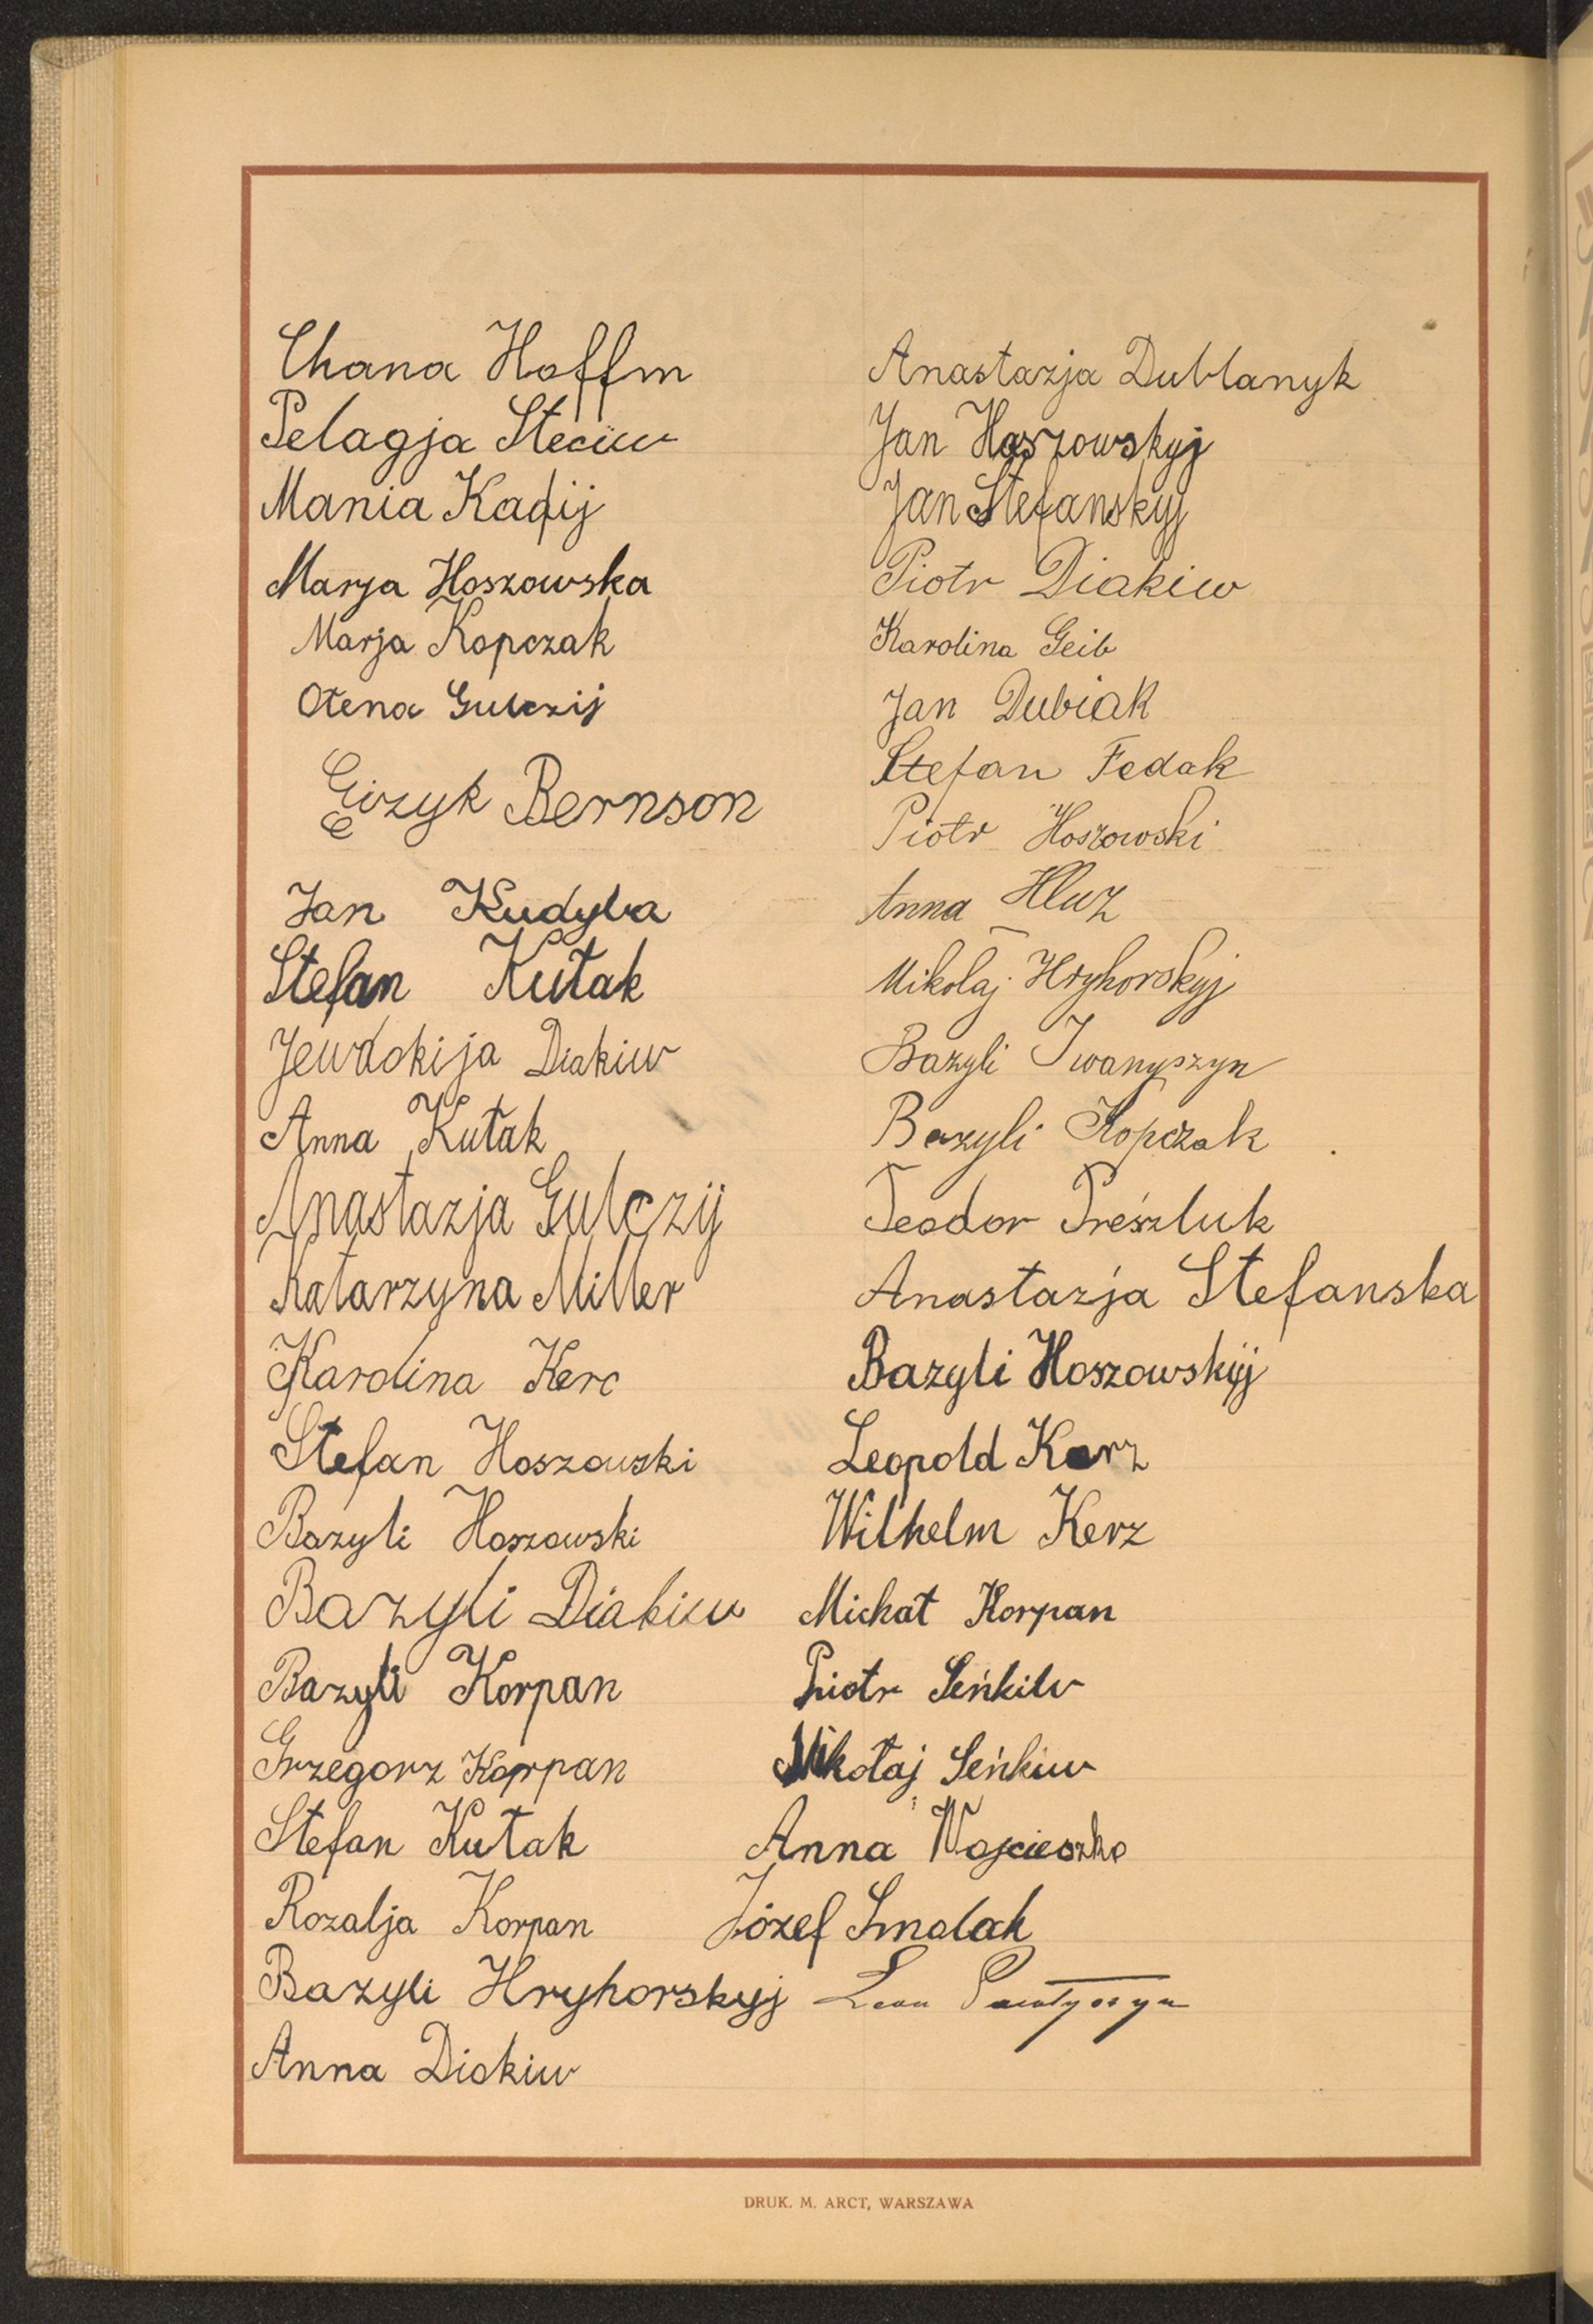 Chana Hoffm
Pelagja Steciw
Mania Kadij
Marja Hoszowska
Marja Kopczak
Ołena Gulczij
Gizyk Bernson
Jan Kudyba
Stefan Kutak
Jewdokija Diakiw
Anna Kutak
Anastazja Gulczij
Katarzyna Miller
Karolina Kerc
Stefan Hoszowski
Bazyli Hoszowski
Bazyli Diakiw
Bazyli Korpan
Grzegorz Korpan
Stefan Kutak
Rozalja Korpan
Bazyli Hryhorskyj
Anna Diakiw
Anastazja Dublanyk
Jan Hoszowskyj
Jan Stefanskyj
Piotr Diakiw
Karolina Geib
Jan Dubiak
Stefan Fedak
Piotr Hoszowski
Anna Hluz
Mikolaj Hryhorskyj
Bazyli Iwanyszyn
Bazyli Kopczak
Teodor Preszluk
Anastazja Stefanska
Bazyli Hoszowskyj
Leopold Kerz
Wilhelm Kerz
Michał Korpan
Piotr Seńkiw
Mikołaj Seńkiw
Anna Wojcieszko
Józef Smolak
Leon
DRUK. M. ARCT, WARSZAWA